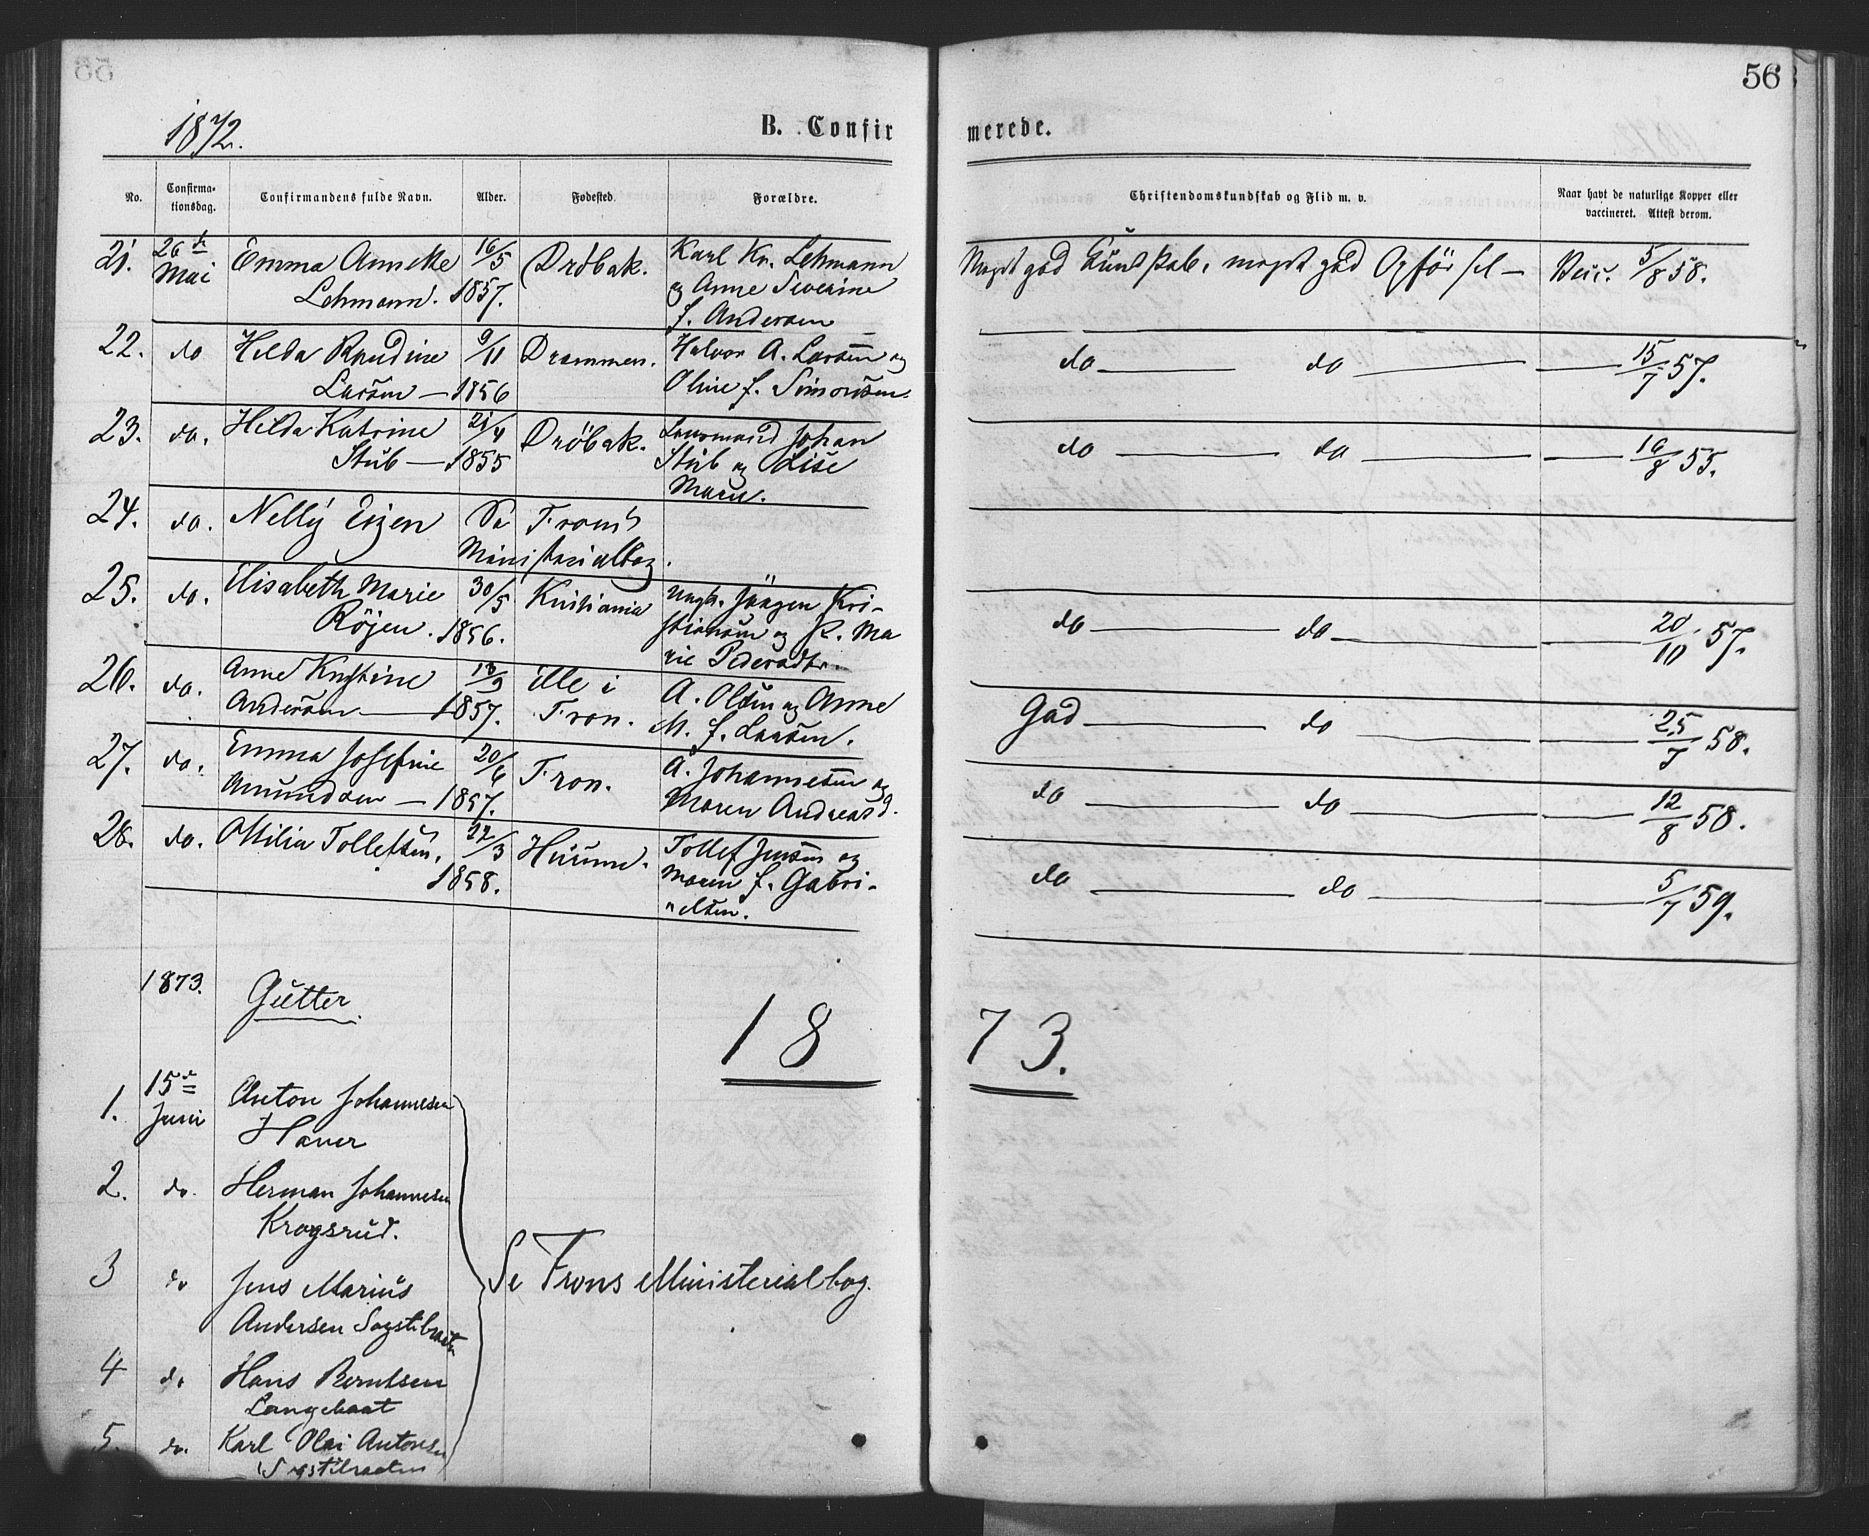 56
1872.
B. Confirmerede.
No. Confirmationsdag. Confirmandens fulde Navn. Alder. Fødested. Forældre. Christendomskundskab og Flid m. v. Naar havt de naturlige Kopper eller vaccineret. Attest derom.
21. 26de Emma Annette 16/5 Drøbak. Karl Kr. Lehmann Meget god Kundskab, meget god Opførsel — Vacc. 5/8 58.
Mai Lehmann. 1857. og Anne Severine
f. Andersen
22. do Hilda Randine 9/11 Drammen. Halvor A. Larsen og do — do — 15/7 57.
Larsen — 1856 Oline f. Simonsen.
23. do. Hilda Katrine 21/4 Drøbak. Johan do — do — 16/8 55.
Stub — 1855 Stub og Lise
Maren.
24. do. Nelly Eizen Se Frons
Ministerialbog.
25. do. Elisabeth Marie 30/5 Kristiania Jørgen Kri- do — do — 20/10 57.
Röjen. 1856. stiansen og K. Ma
rie Pedersdtr.
26. do. Anne Kristine 13/9 Elle i A. Olsen og Anne God — do — 25/7 58.
Andersen — 1857. Fron. M. f. Larsen.
27. do. Emma Josefine 20/6 Fron. A. Johannesen og do — do — 12/8 58.
Amundsen — 1857. Maren Andreasd.
28. do. Ottilia Tollefsen. 22/3 Hurum. Tollef Jensen og do — do — 5/7 59.
1858. Maren f. Gabri-
elsen.
1873. Gutter
1873.
1. 15de Anton Johannesen
Juni Haver
2. do. Herman Johannesen
Krogsrud.
3 do Jens Marius Se Frons Ministerialbog.
Andersen Sogstibraaten
4 do Hans Berntsen
Langebaat
5. do. Karl Olai Antonsen
Sogstibraaten